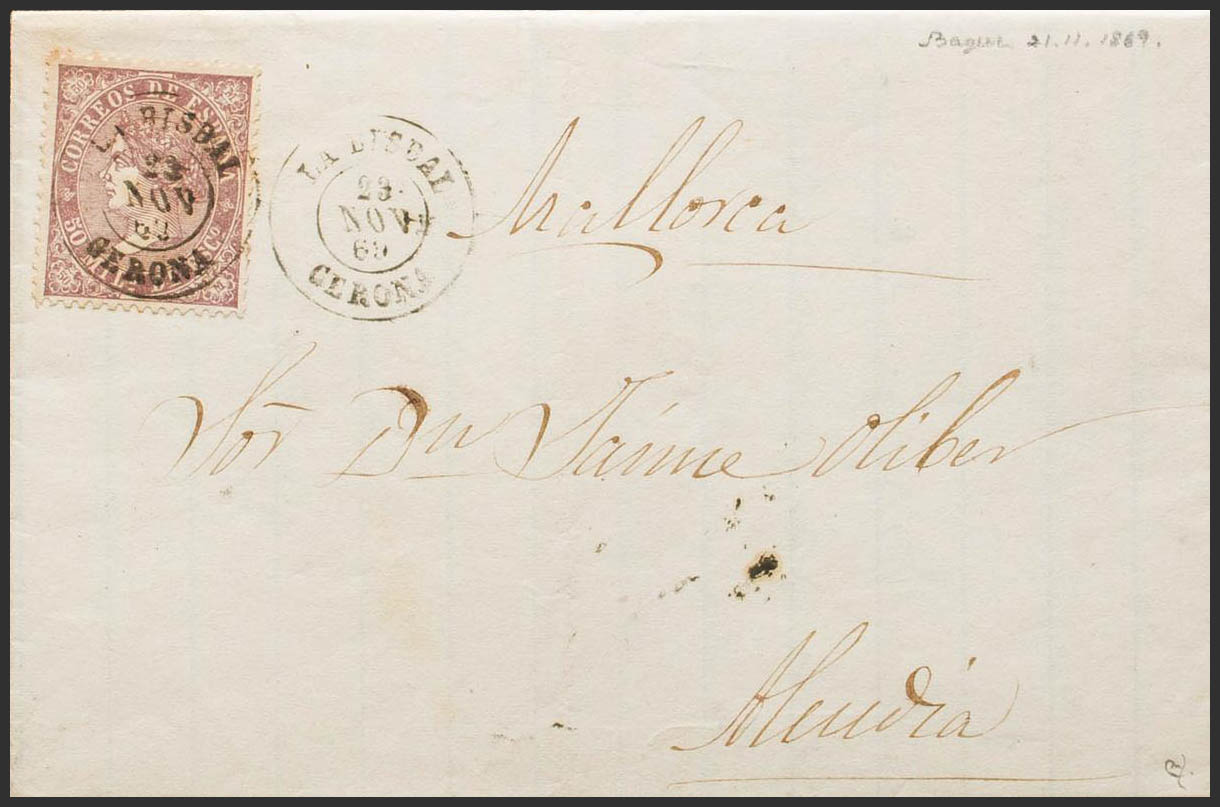 Bagur 21.11.1869.
CORREOS DE ESPAÑA
50 MIL
LA BISBAL
23
NOV
69
GERONA
LA BISBAL
23
NOV
69
GERONA
Mallorca
Sor Dn Jaime Oliber
Alcudia